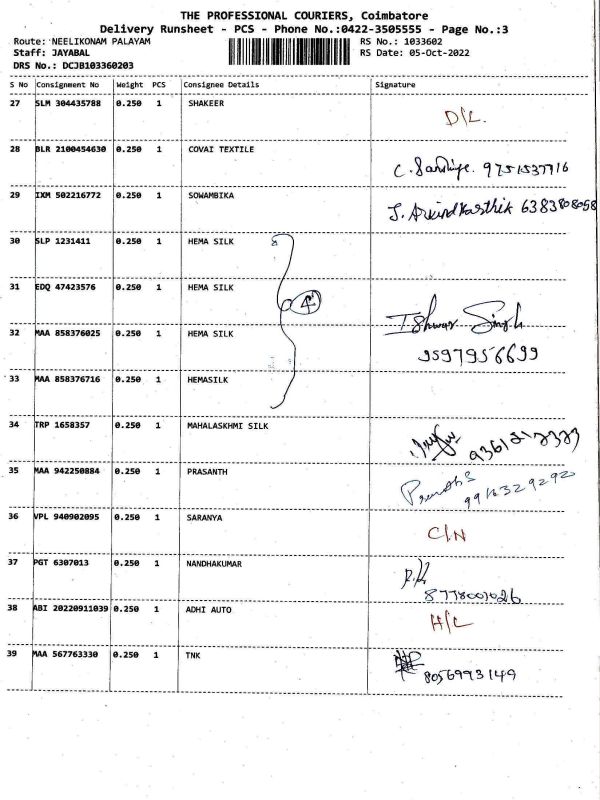 THE PROFESSIONAL COURIERS, Coimbatore
Delivery Runsheet - PCS - Phone No.:0422-3505555 - Page No.:3
Route: NEELIKONAM PALAYAM RS No.: 1033602
Staff: JAYABAL RS Date: 05-Oct-2022
DRS No.: DCJB103360203
S No Consignment No Weight PCS Consignee Details Signature
27 SLM 304435788 0.250 1 SHAKEER D/L.
28 BLR 2100454630 0.250 1 COVAI TEXTILE
C. 9751537916
29 IXM 502216772 0.250 1 SOWAMBIKA J. Arvind Karthik 6383808058
30 SLP 1231411 0.250 1 HEMA SILK
31 EDQ 47423576 0.250 1 HEMA SILK 4
Ishwar Singh
32 MAA 858376025 0.250 1 HEMA SILK
9597956699
33 MAA 858376716 0.250 1 HEMASILK
34 TRP 1658357 0.250 1 MAHALASKHMI SILK
35 MAA 942250884 0.250 1 PRASANTH
36 VPL 940902095 0.250 1 SARANYA C/N
37 PGT 6307013 0.250 1 NANDHAKUMAR
8778001026
38 ABI 20220911039 0.250 1 ADHI AUTO H/L
39 MAA 567763330 0.250 1 TNK
8056993149